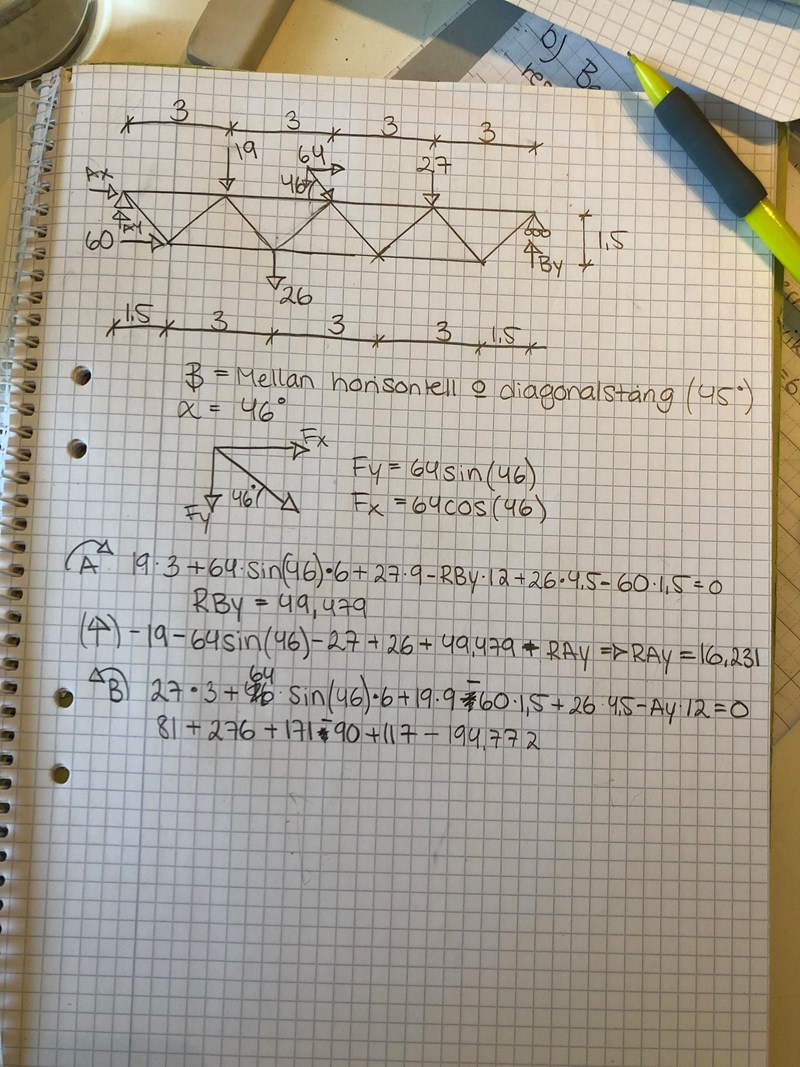 b) B
re
3 3 3 3
19 64 27
46°
AX
AY
60
1,5
By
26
1,5 3 3 3 1,5
β = Mellan horisontell o diagonalstång (45°)
α = 46°
Fx
Fy = 64sin(46)
46°
Fx = 64cos(46)
Fy
A 19·3+64·sin(46)·6+27·9-RBy·12+26·4,5-60·1,5=0
RBy = 49,479
(↑) -19-64sin(46)-27+26+49,479+RAy => RAy = 16,231
B 27·3+64·sin(46)·6+19·9-60·1,5+26·4,5-Ay·12=0
81+276+171-90+117-194,772